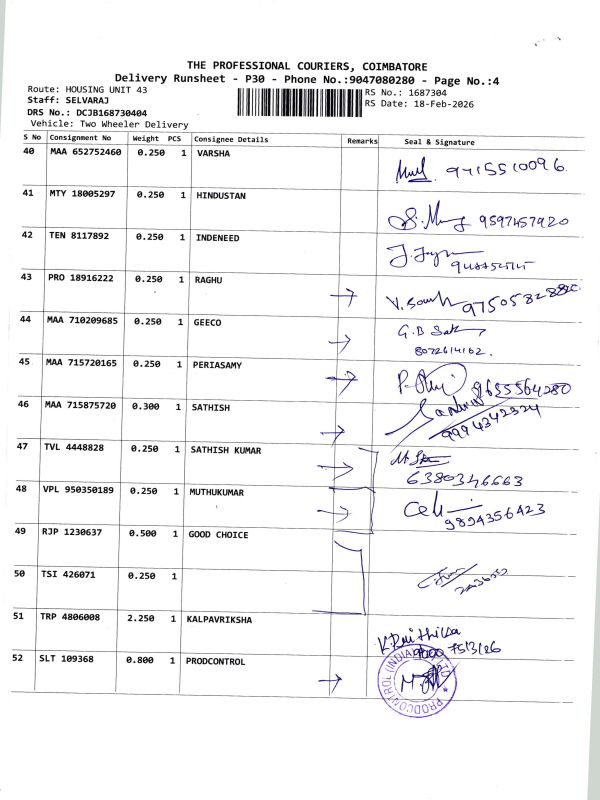 THE PROFESSIONAL COURIERS, COIMBATORE
Delivery Runsheet - P30 - Phone No.:9047080280 - Page No.:4
Route: HOUSING UNIT 43
RS No.: 1687304
Staff: SELVARAJ
RS Date: 18-Feb-2026
DRS No.: DCJB168730404
Vehicle: Two Wheeler Delivery
S No Consignment No Weight PCS Consignee Details Remarks Seal & Signature
40 MAA 652752460 0.250 1 VARSHA
9715510096
41 MTY 18005297 0.250 1 HINDUSTAN
9597457920
42 TEN 8117892 0.250 1 INDENEED
43 PRO 18916222 0.250 1 RAGHU
44 MAA 710209685 0.250 1 GEECO
G.B
8072614162.
45 MAA 715720165 0.250 1 PERIASAMY
9655564280
46 MAA 715875720 0.300 1 SATHISH
9994342324
47 TVL 4448828 0.250 1 SATHISH KUMAR
6380346663
48 VPL 950350189 0.250 1 MUTHUKUMAR
9894356423
49 RJP 1230637 0.500 1 GOOD CHOICE
50 TSI 426071 0.250 1
51 TRP 4806008 2.250 1 KALPAVRIKSHA
52 SLT 109368 0.800 1 PRODCONTROL
PRODCONTROL (INDIA) LTD